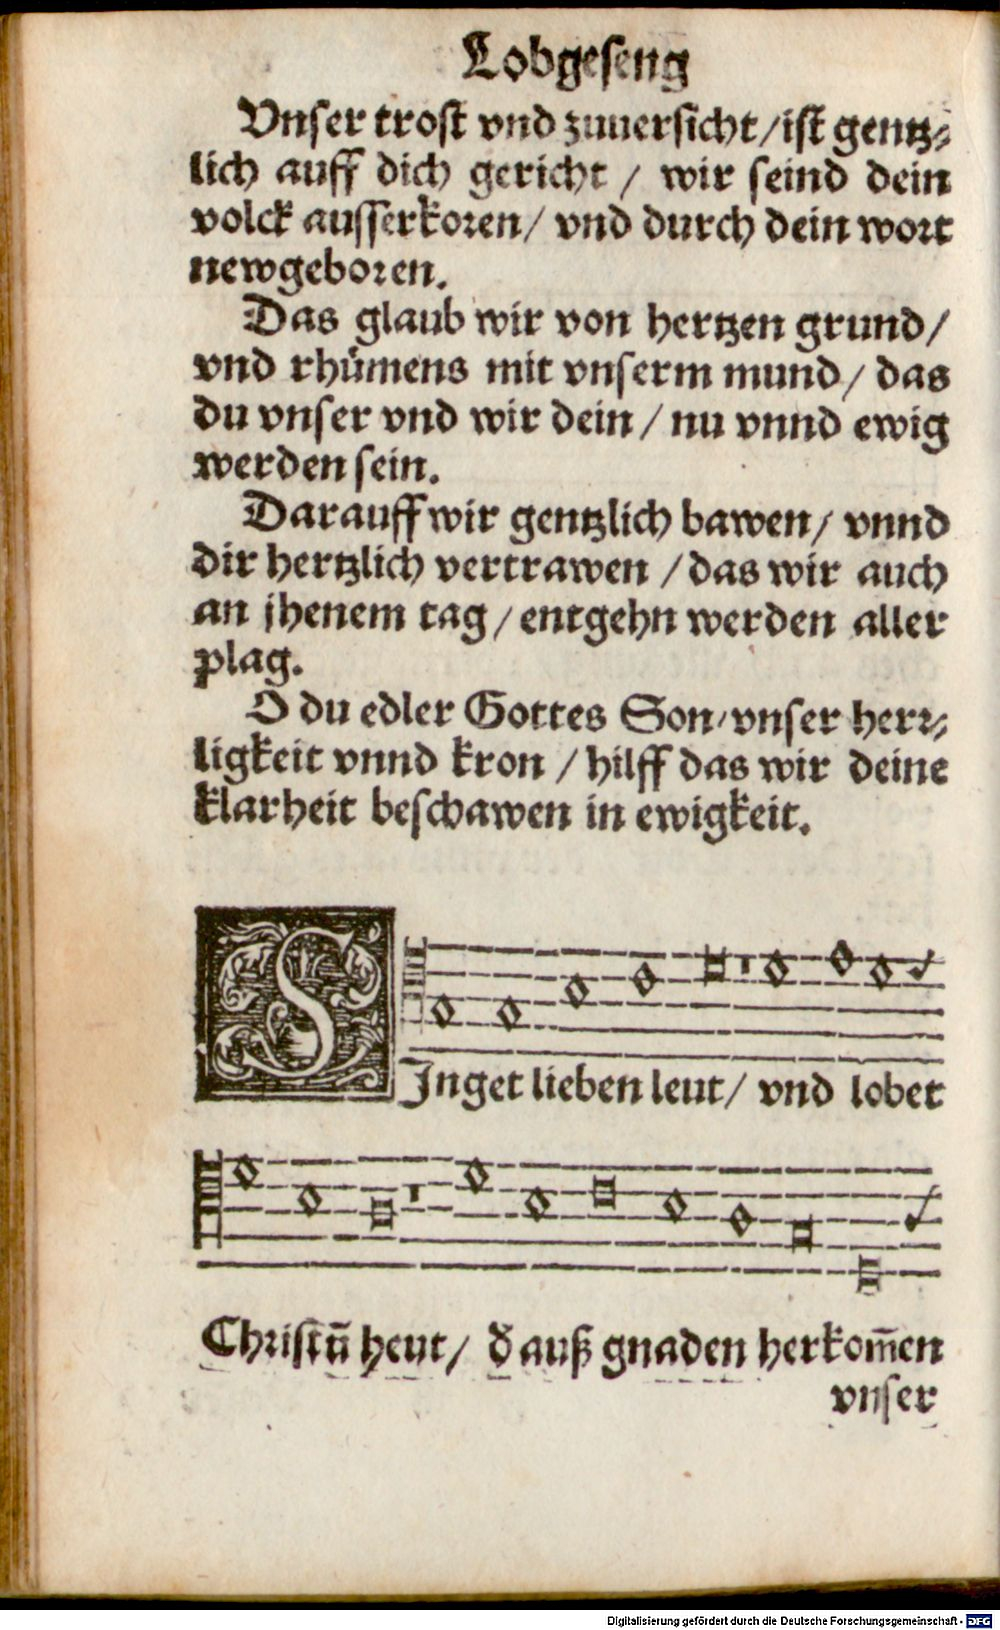 Lobgeseng
Vnser trost vnd zuuersicht/ist gentz⸗
lich auff dich gericht / wir seind dein
volck ausserkoren/ vnd durch dein wort
newgeboren.
Das glaub wir von hertzen grund/
vnd rhümens mit vnserm mund/ das
du vnser vnd wir dein / nu vnnd ewig
werden sein.
Darauff wir gentzlich bawen/ vnnd
dir hertzlich vertrawen / das wir auch
an jhenem tag/ entgehn werden aller
plag.
O du edler Gottes Son/vnser herr⸗
ligkeit vnnd kron / hilff das wir deine
klarheit beschawen in ewigkeit.
SInget lieben leut/ vnd lobet
Christū heut/ d̄ auß gnaden herkom̄en
vnser
Digitalisierung gefördert durch die Deutsche Forschungsgemeinschaft - DFG